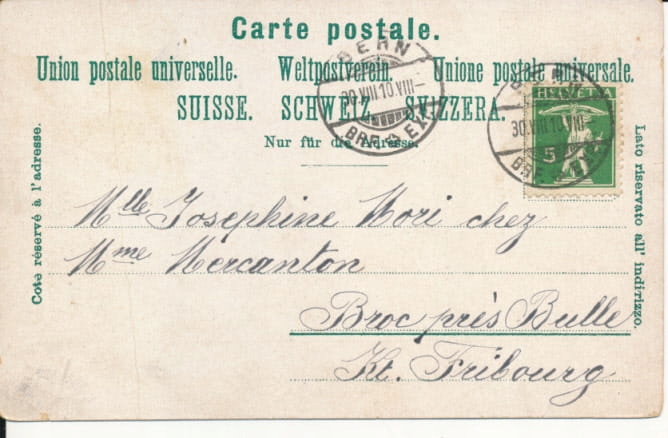 Carte postale.
Union postale universelle. Weltpostverein. Unione postale universale.
SUISSE. SCHWEIZ. SVIZZERA.
Nur für die Adresse.
Coté réservé à l'adresse.
Lato riservato all' indirizzo.
BERN
30.VIII.10.VIII-
BRF. EXP.
HELVETIA
5
BERN
30.VIII.10.VIII-
BRF. EXP.
Mlle Josephine Mori chez
Mme Mercanton
Broc près Bulle
Kt. Fribourg